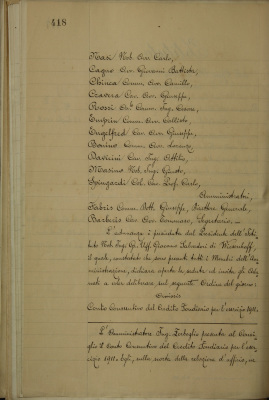 418
Nasi Nob. Avv. Carlo,
Cagno Avv. Giovanni Battista,
Chiesa Comm. Avv. Camillo,
Cravero Cav. Avv. Giuseppe,
Rossi Comm. Ing.
Comm. Avv. Callisto,
Engelfred Cav. Avv. Giuseppe,
Bonino Comm. Avv. Lorenzo,
Cav. Ing. Attilio,
Masino Nob. Ing.
Spingardi Col. Cav. Prof. Carlo,
Amministratori,
Fabris Comm. Dott. Giuseppe, Direttore Generale,
Barberis Cav. Avv. Tommaso, Segretario. —
L'adunanza è presieduta dal Presidente dell'Isti-
tuto Nob. Ing. Gr. Uff. Giacomo Salvadori di Wiesenhoff,
il quale, constatato che sono presenti tutti i Membri dell'Am-
ministrazione, dichiara aperta la seduta ed invita gli Adu-
nati a voler deliberare sul seguente Ordine del giorno:
Omissis
Conto Consuntivo del Credito Fondiario per l'esercizio 1911.
L'Amministratore Ing. presenta al Consi-
glio il Conto Consuntivo del Credito Fondiario per l'eser-
cizio 1911. Egli, sulla scorta della relazione d'ufficio, ne